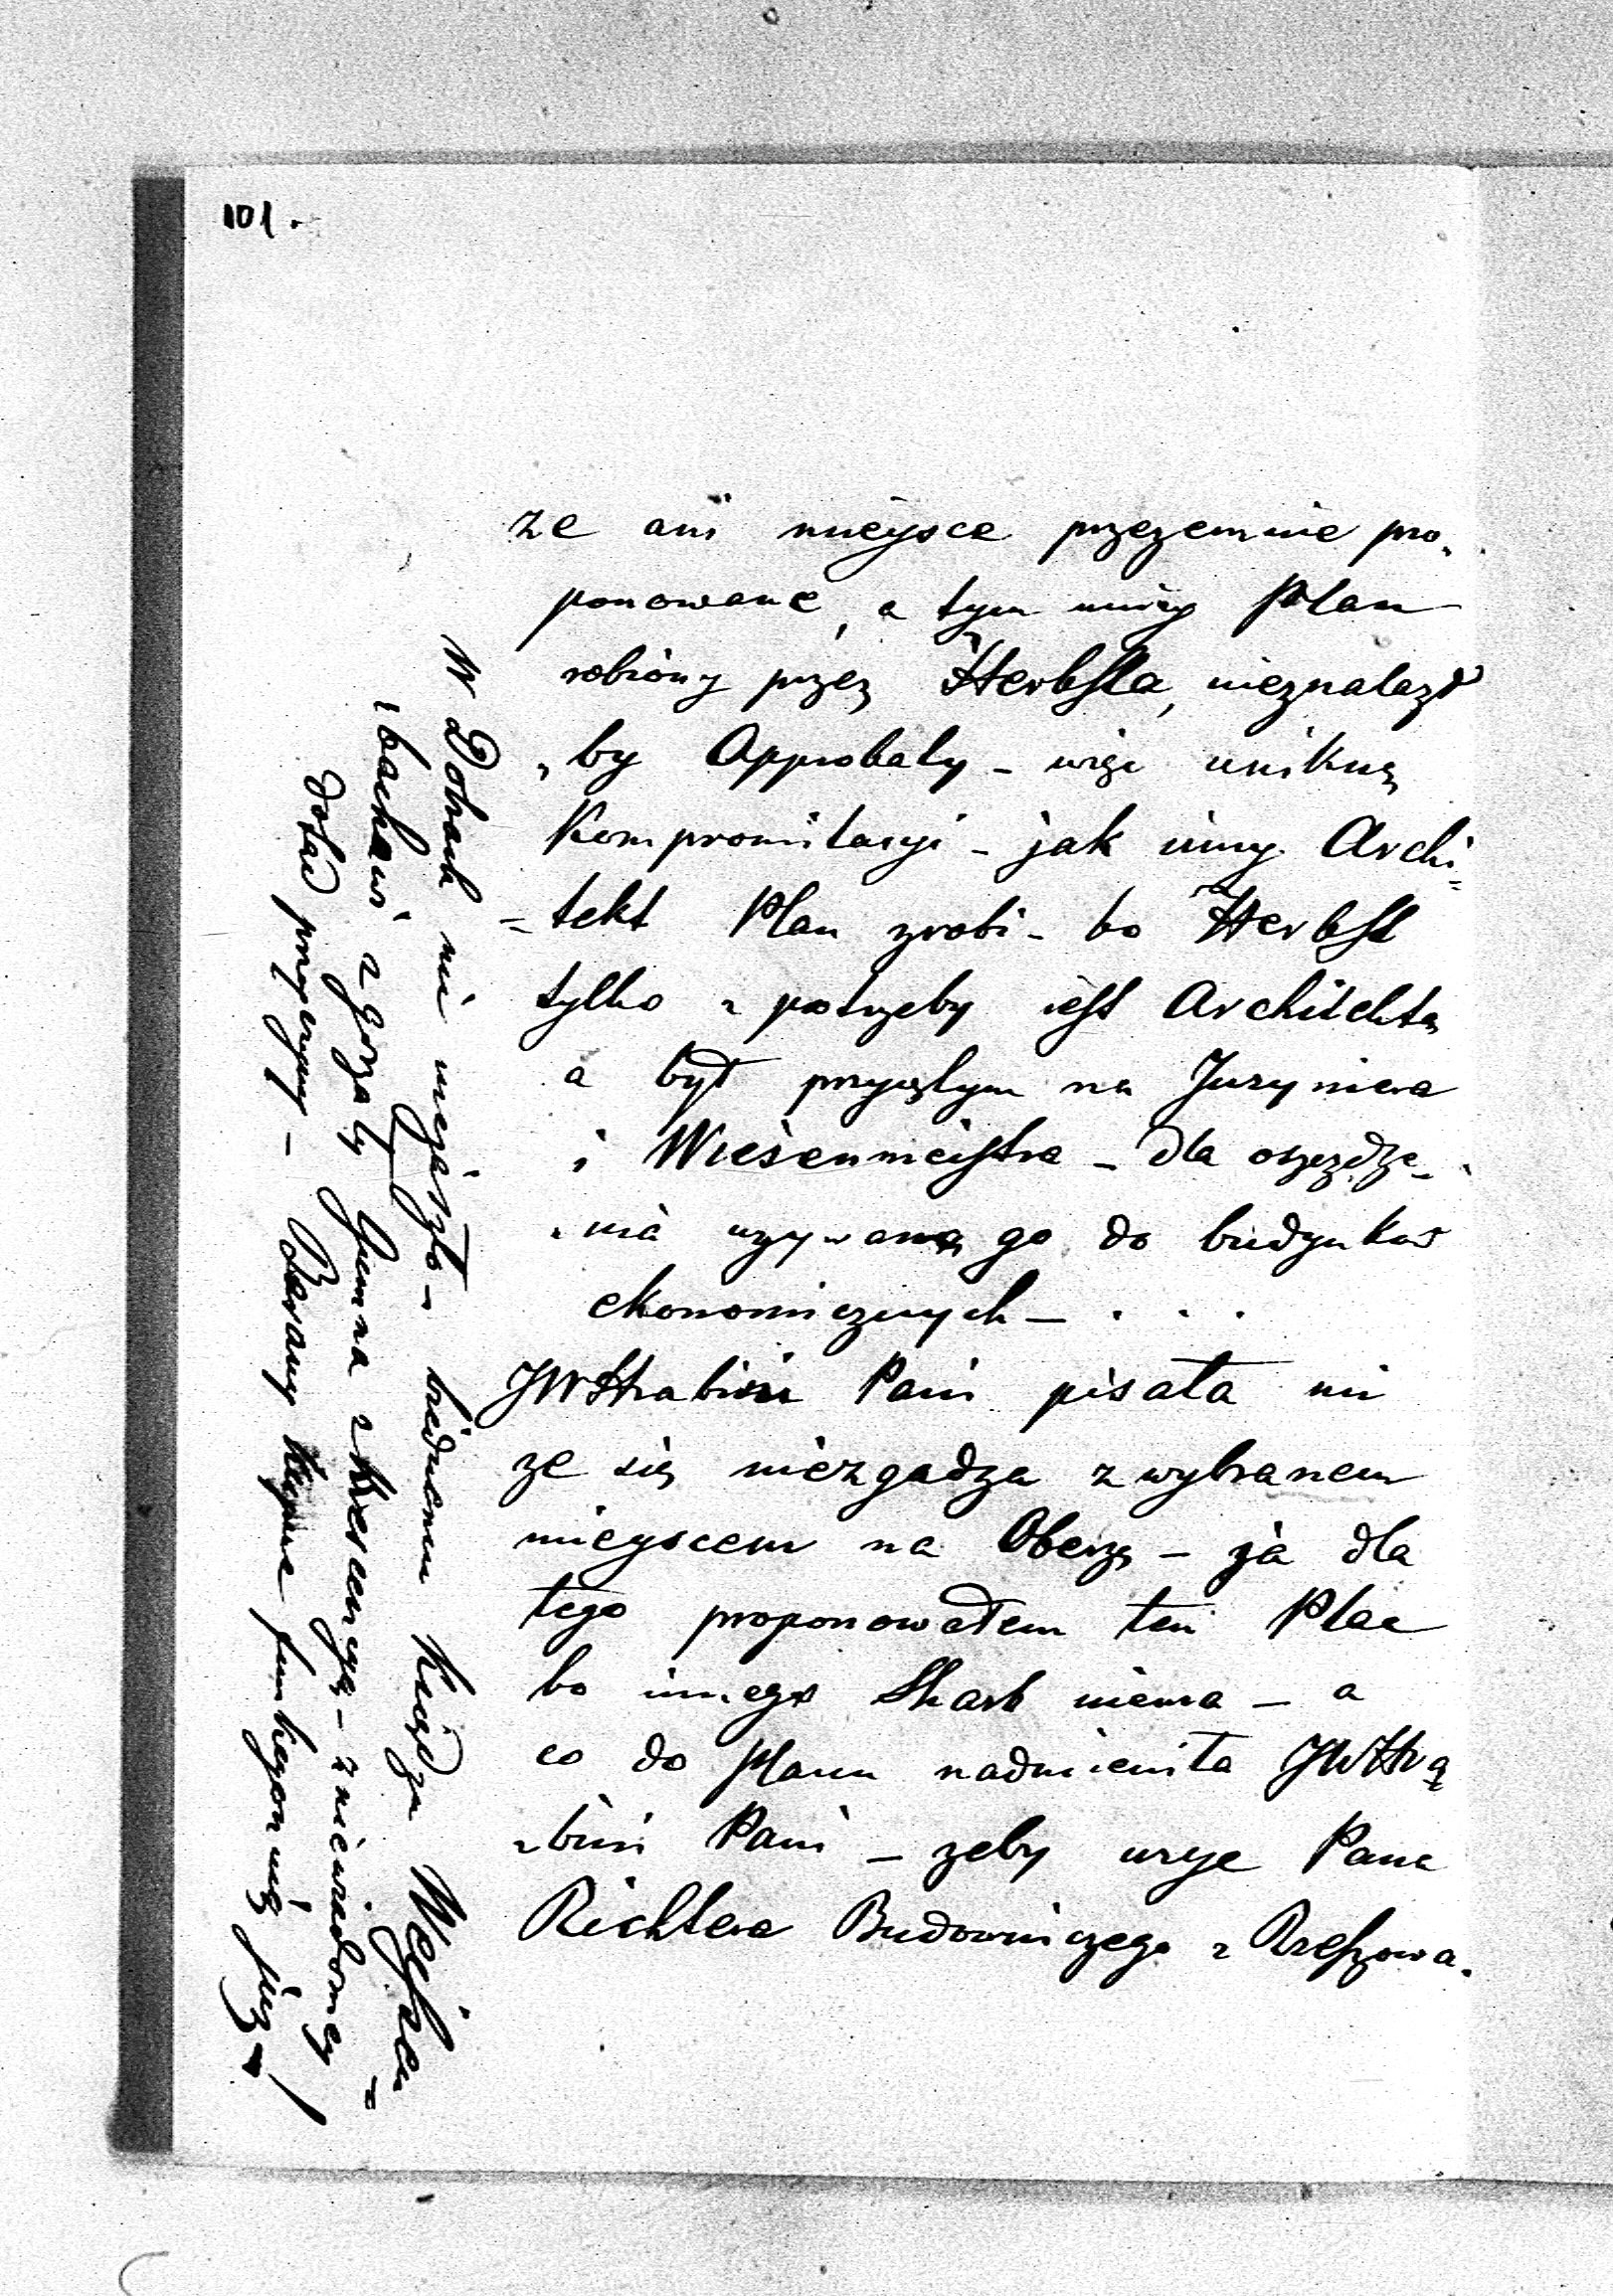 101.
ze ani mieysce przezemnie pro„
ponowane, a tym mniey Plan
robiony przez Herbsta, nieznalazł
„by Approbaty – więc uniknę
Kompromitacyi – jak inny Archi=
=tekt Plan zrobi – bo Herbst
tylko z potrzeby iest Architektą
a był przyiętym na Inzyniera
i Wiesenmeistra – dla oszczędze„
„nia uzywamy go do budynków
ekonomicznych – . . .
JWHrabini Pani pisała mi
ze się niezgadza z wybranem
mieyscem na Oberzę – ja dla
tego proponowałem ten Plac
bo innego Skarb niema – a
co do planu nadmieniła JWHra
„bini Pani – zeby uzye Pana
Richtera Budowniczego z Rzeszowa.
W Dobrach nic nie zaszło – biednemu Księdzu
zgorzały Gumna z Krescencyą – z niewiadomey
dotąd przyczyny – Barany już –